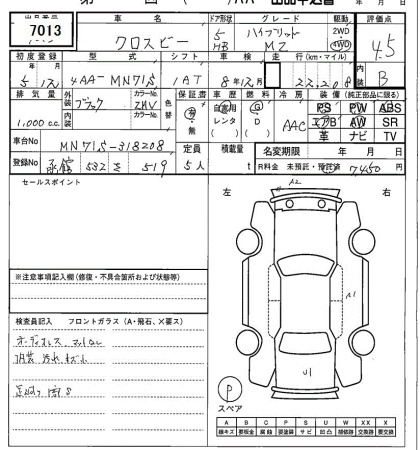 出品番号 車名 ドア形状 グレード 駆動 評価点
7013 クロスビー 5 HB ハイブリッド MZ 2WD 4WD 4.5
初度登録 型式 シフト 車検 走行(km・マイル) 内装
5年 12月 4AA-MN71S IAT 8年12月 22,208 B
排気量 外装 ブラック カラーNo. ZHV 色替 保証書 車歴 燃料 冷房 装備(純正部品に限る)
1,000c.c. 内装 カラーNo. 有・無 自家用 レンタ G D AAC PS PW ABS
エアB AW SR
革 ナビ TV
車台No MN71S-318208 定員 積載量 名変期限 年 月 日
登録No 函館 532 を 519 5人 t R料金 未預託・預託済 7450
セールスポイント
左 右
A2
A1
U1
※注意事項記入欄(修復・不具合箇所および状態等)
検査員記入 フロントガラス(A・飛石、X要ス)
オーディオレス マットなし
内装 汚れ キズ小
P
スペア
A B C P S U W X XX
線キズ 要板金 腐蝕 要塗装 サビ 凹凸 補修跡 交換跡 要交換